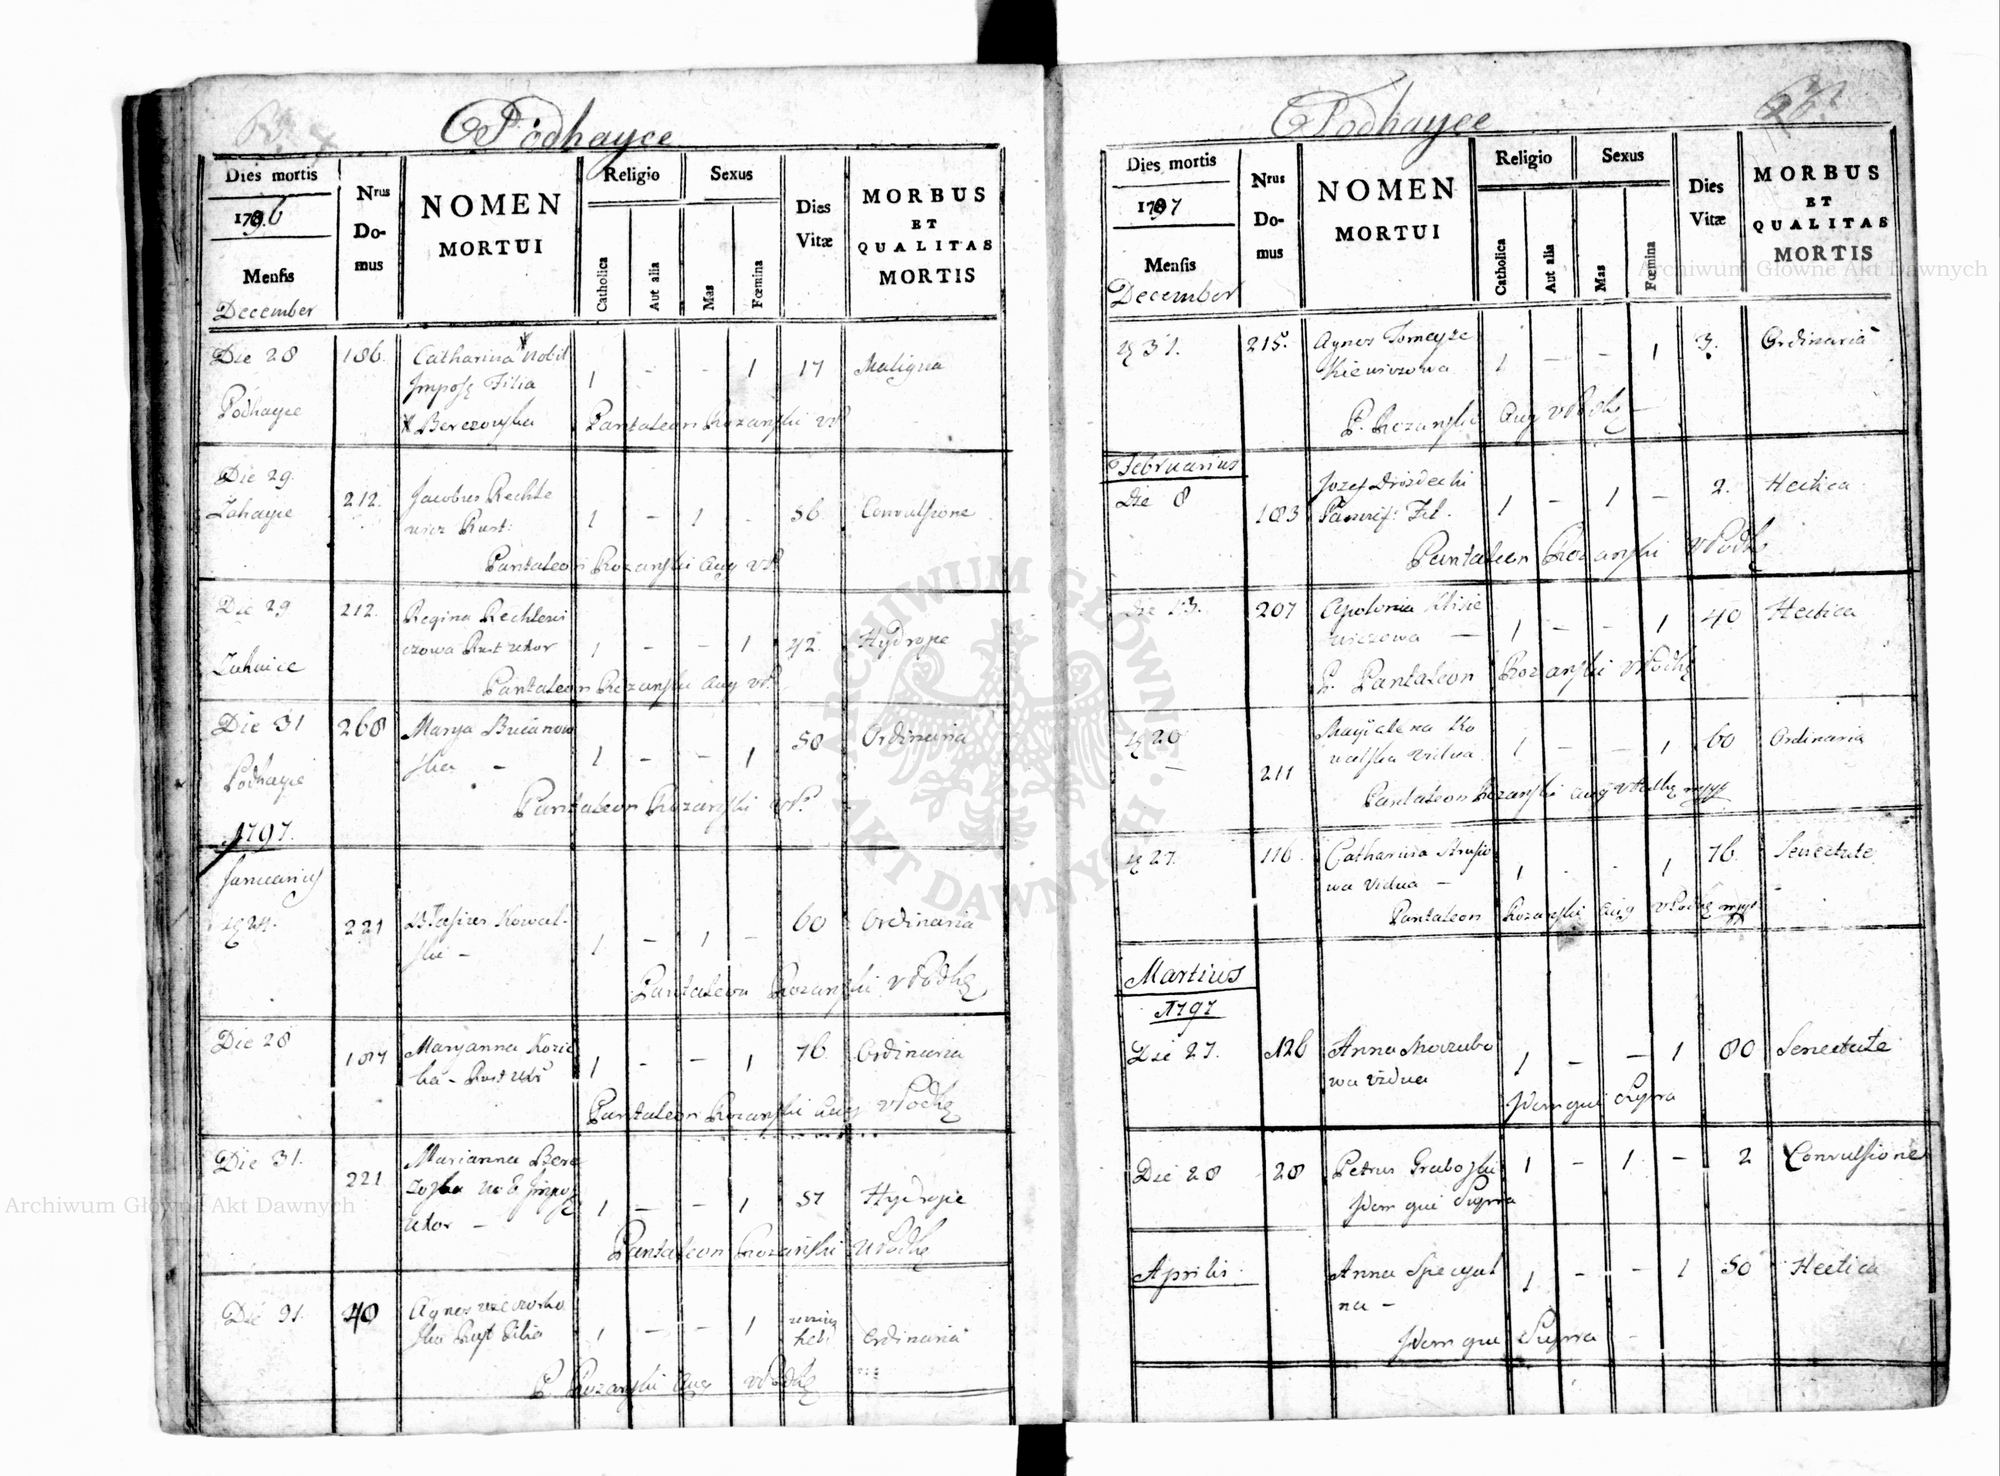 Podhayce
Dies mortis
1796
Mensis
December
Nrus Domus
NOMEN
MORTUI
Religio
Catholica
Aut alia
Sexus
Mas
Fœmina
Dies
Vitæ
MORBUS
ET
QUALITAS
MORTIS
Die 28 186. Catharina Nobil 1 - - 1 17 Maligna
Filia
Podhayce Berezowska Pantaleon Rozanski
Die 29. 212. Jacobus Rechte 1 - 1 - 56 Convulsione
wicz Rust:
Pantaleon Rozanski Aug VP
Die 29 212. Regina Rechtewi 1 - - 1 42. Hydrope
czowa Rust uxor
Pantaleon Rozanski Aug VP.
Die 31 268 Marya 1 - - 1 50 Ordinaria
Podhayce ska -
Pantaleon Rozanski VP.
1797.
Januarius
24. 221 Kowal- 1 - 1 - 60 Ordinaria
ski -
Pantaleon Rozanski VPodhę
Die 28 187 Maryanna Kozic 1 - - 1 76. Ordinaria
ka - Rust
Pantaleon Rozanski Aug VPodhę
Die 31. 221 Marianna Bere 1 - - 1 57 Hydrope
uxor -
Pantaleon Rozanski VPodhę
Die 31. 40 Agnes 1 - - 1 Ordinaria
ska Rust Filia
P. Rozanski Aug VPodhę
Podhayce
Dies mortis
1797
Mensis
December
Nrus Domus
NOMEN
MORTUI
Religio
Catholica
Aut alia
Sexus
Mas
Fœmina
Dies
Vitæ
MORBUS
ET
QUALITAS
MORTIS
31. 215. Agnes Tomasze 1 - - 1 3. Ordinaria
kiewiczowa
P. Rozanski Aug VPodhę -
Februarius
Die 8 183 Jozef Drozdecki 1 - 1 - 2. Hectica
Fil.
Pantaleon Rozanski VPodhę
Die 13. 207 Apolonia Klisie 1 - - 1 40 Hectica
wiczowa -
P. Pantaleon Rozanski VPodhę
20 211 Magdalena Ko 1 - - 1 60 Ordinaria
walska vidua
Pantaleon Rozanski Aug VPodhę mpp
27. 116. Catharina 1 - - 1 76. Senectute
wa vidua -
Pantaleon Rozanski Aug VPodhę mpp
Martius
1797
Die 27. 126 Anna Mazubo 1 - - 1 80 Senectute
wa vidua
Idem qui Supra
Die 28 28 Petrus Graboski 1 - 1 - 2 Convulsione
Idem qui Supra
Aprilis. Anna Specyal 1 - - 1 50 Hectica
na -
Idem qui Supra -
Archiwum Główne Akt Dawnych
Archiwum Główne Akt Dawnych
ARCHIWUM GŁÓWNE · AKT DAWNYCH ·